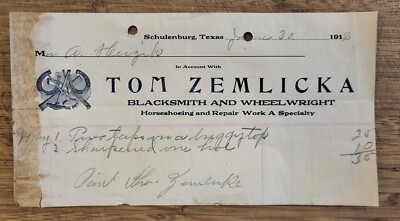 Schulenburg, Texas June 30 1916
Mr. A. Heizik
In Account With
TOM ZEMLICKA
BLACKSMITH AND WHEELWRIGHT
Horseshoeing and Repair Work A Specialty
May 1 Two taps on a buggy top 25
sharpened one hoe 10
35
Paid Tho. Zemlicka